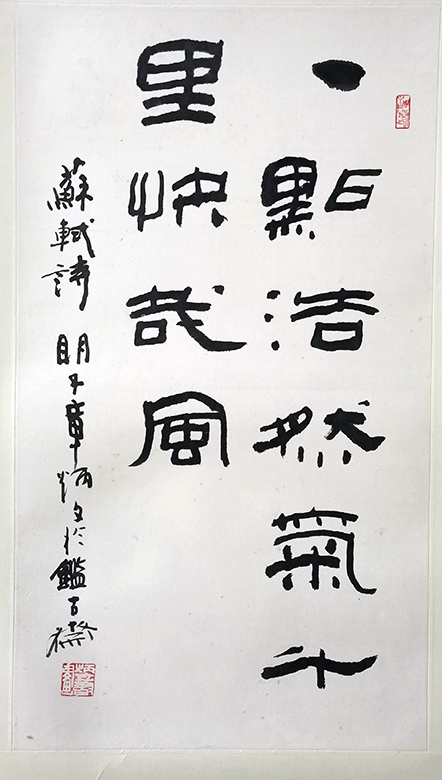 一點浩然氣千
里快哉風
蘇軾詩 明子章炳文於鑑古齋